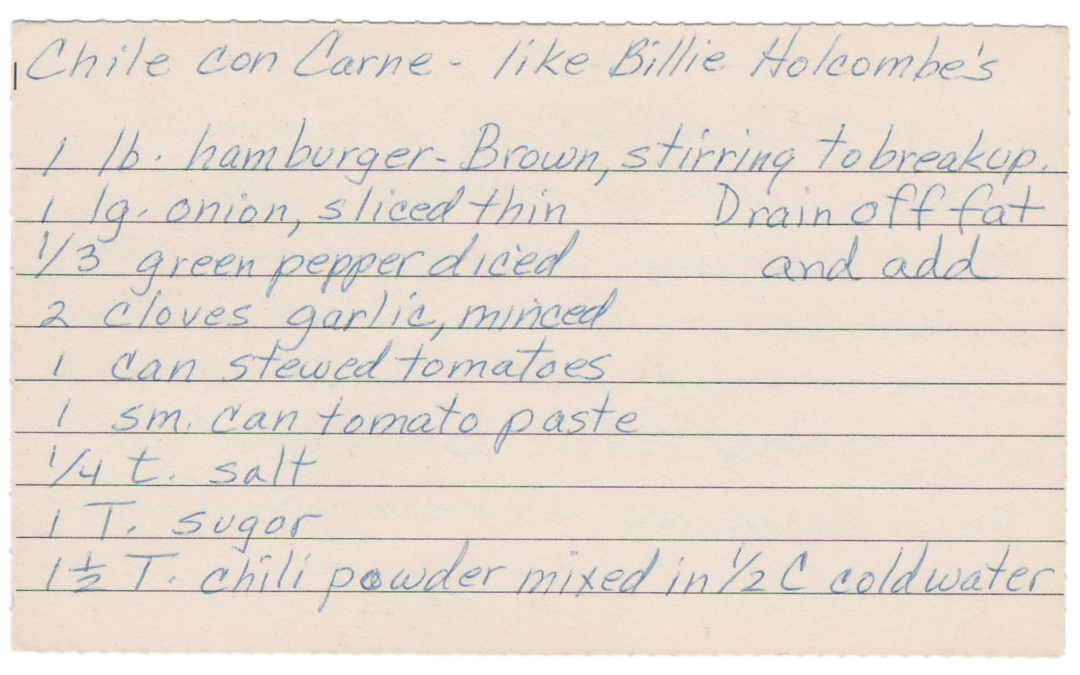 Chile con Carne - like Billie Holcombe's
1 lb. hamburger - Brown, stirring to breakup.
1 lg. onion, sliced thin Drain off fat
1/3 green pepper diced and add
2 cloves garlic, minced
1 can stewed tomatoes
1 sm. can tomato paste
1/4 t. salt
1 T. sugar
1 1/2 T. chili powder mixed in 1/2 C cold water